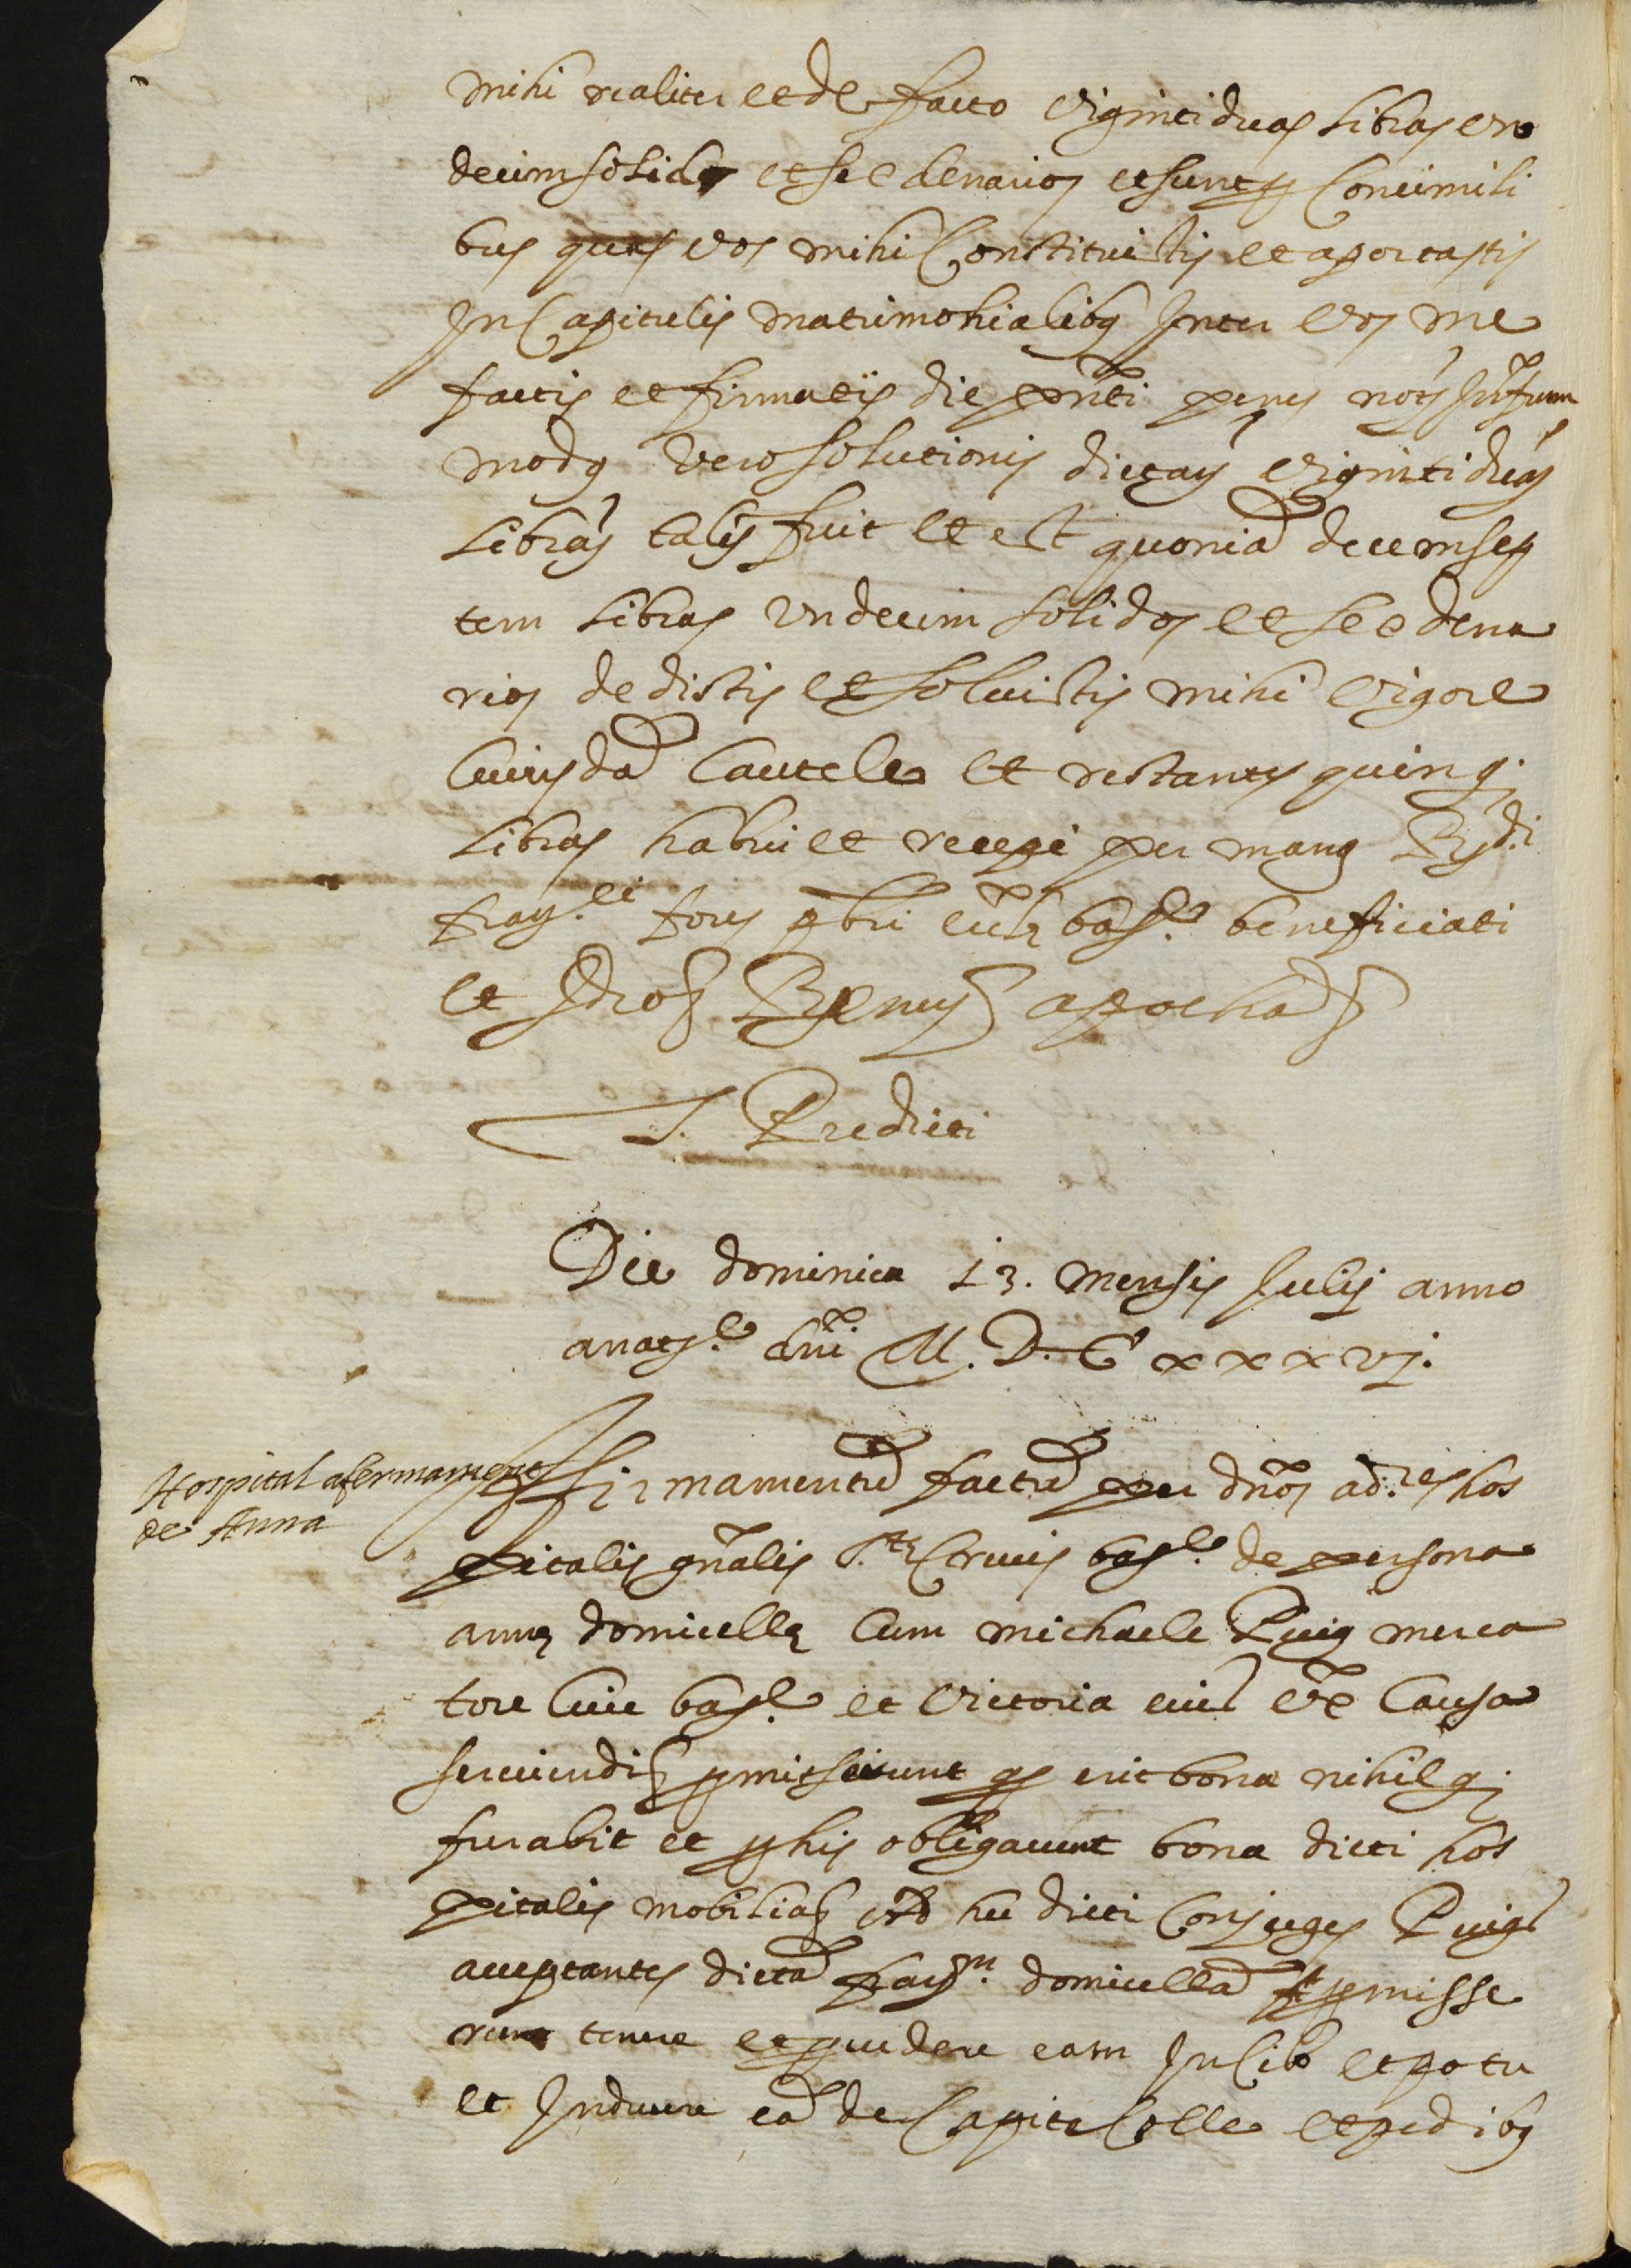 mihi realiter et de facto viginti duas libras un
decim solidos et sex denarios et sunt p consimili
bus quas vos mihi Constituistis et aportastis
In Capitulis matrimonialibus Inter vos me
factis et firmatis die pñti penes nots Infrum
modus vero solutionis dictay viginti duay
libray talis fuit et est quonia decem sep
tem libras undecim solidos et sex dena
rios dedistis et solvistis mihi vigore
Cuiusda Cautele et restantes quinq.
libras habui et recepi per manus Rdi
fray.ci fores pbri eccl basl.e beneficiati
et Ido R Renus apocha
T. Predicti
Die dominica 13. mensis Julij anno
a natl.e dñi M. D. C xxxvj.
Hospital afermament
de Anna
Affirmamentu factu per dños ad.res hos
pitalis gñalis S.te Crucis basl.e de persona
anne domicelle Cum michaele Puig merca
tore Cive basl.e et victoria eius ux Causa
serviendi pmisserunt q erit bona nihil q.
furabit et p his obligarunt bona dicti hos
pitalis mobilia ad hec dicti Conjuges Puigs
acceptantes dicta fay.m domicella pmisse
runt tenere et pvidere eam In Cibo et potu
et Induere ea de Capite Colle et pedibus